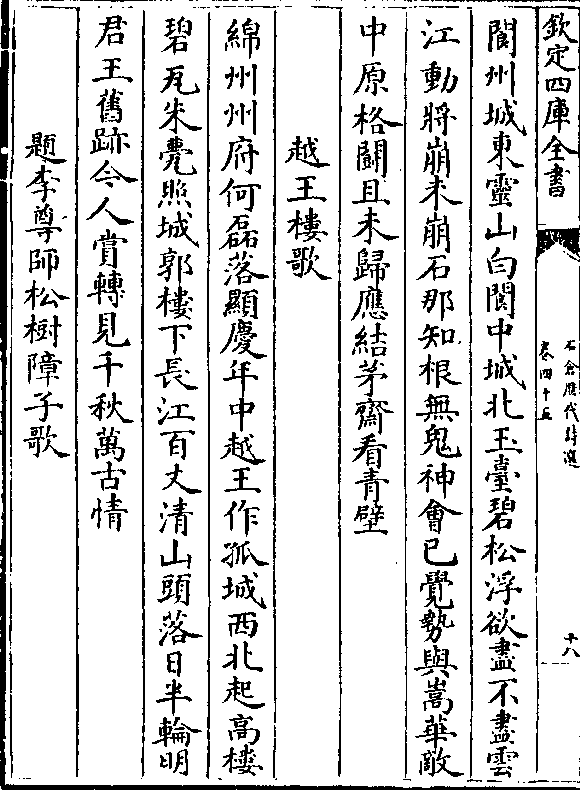 欽定四庫全書
石倉歷代詩選
卷四十五
十八
閬州城東靈山白閬中城北玉臺碧松浮欲盡不盡雲
江動將崩未崩石那知根無鬼神會已覺勢與嵩華敵
中原格鬭且未歸應結茅齋看青壁
越王樓歌
綿州州府何磊落顯慶年中越王作孤城西北起高樓
碧瓦朱甍照城郭樓下長江百丈清山頭落日半輪明
君王舊跡今人賞轉見千秋萬古情
題李尊師松樹障子歌